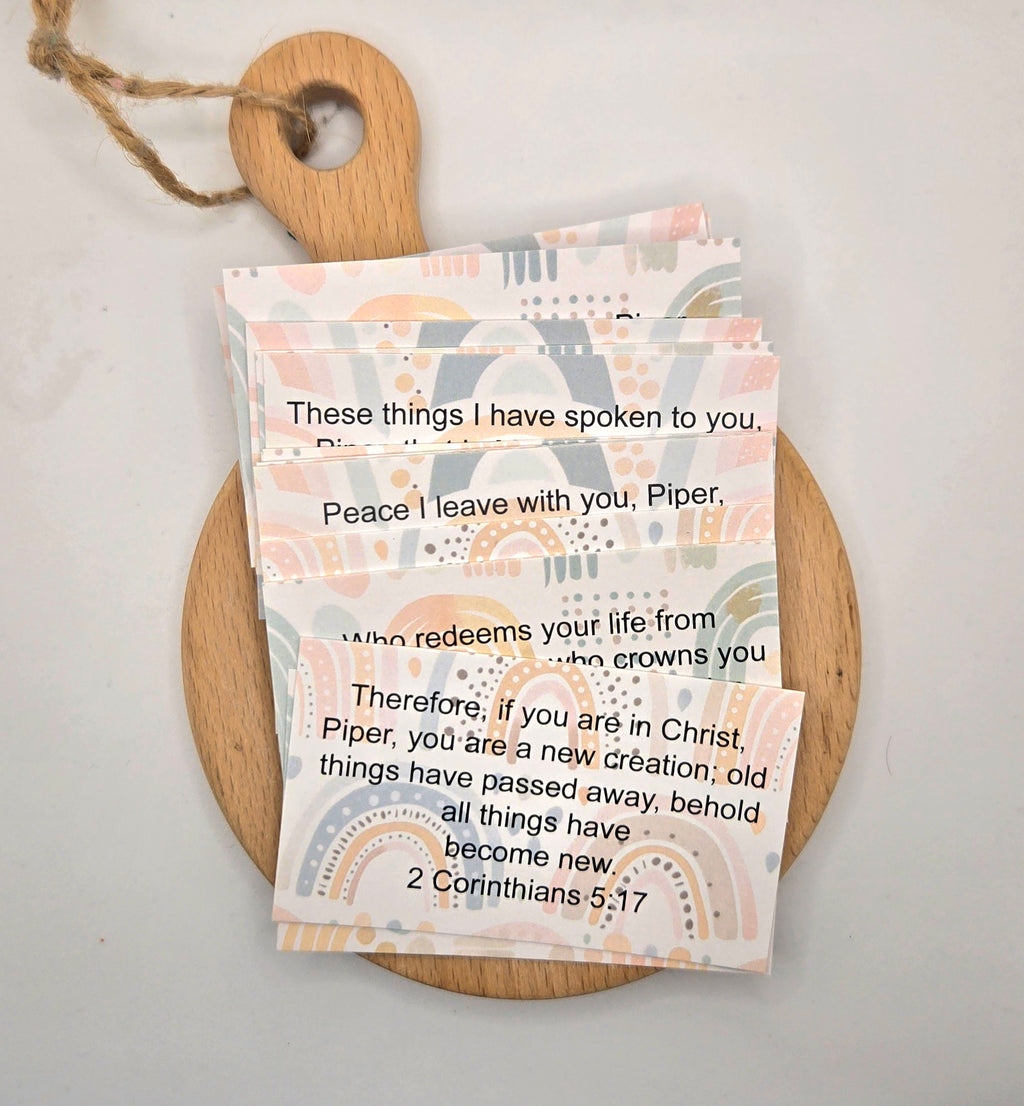 These things I have spoken to you,
Peace I leave with you, Piper,
Who redeems your life from
who crowns you
Therefore, if you are in Christ,
Piper, you are a new creation; old
things have passed away, behold
all things have
become new.
2 Corinthians 5:17